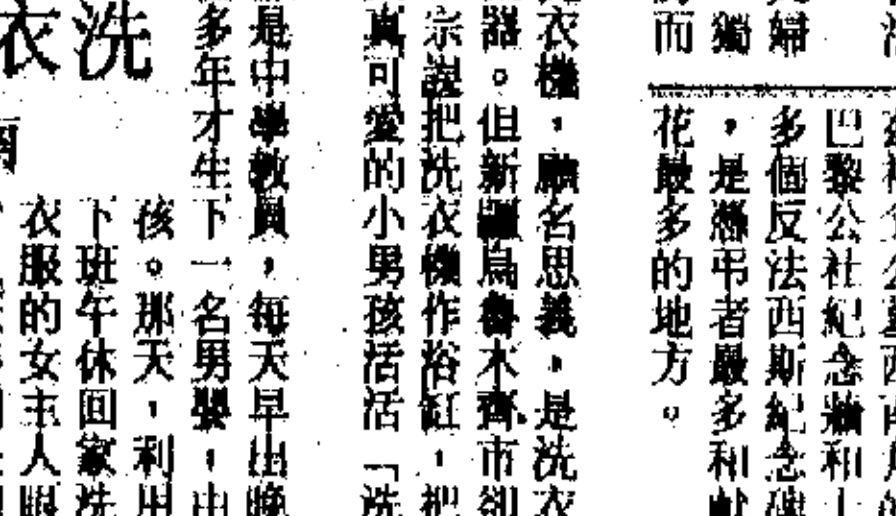 婦
獨
而
巴黎公社紀念牆和上
多個反法西斯紀念碑
，是憑弔者最多和獻
花最多的地方。
衣機，顧名思義，是洗衣
器。但新疆烏魯木齊市卻
宗說把洗衣機作浴缸，把
真可愛的小男孩活活「洗
洗衣
是中學教員，每天早出晚
多年才生下一名男嬰，由
孩。那天，利用
下班午休回家洗
衣服的女主人眼